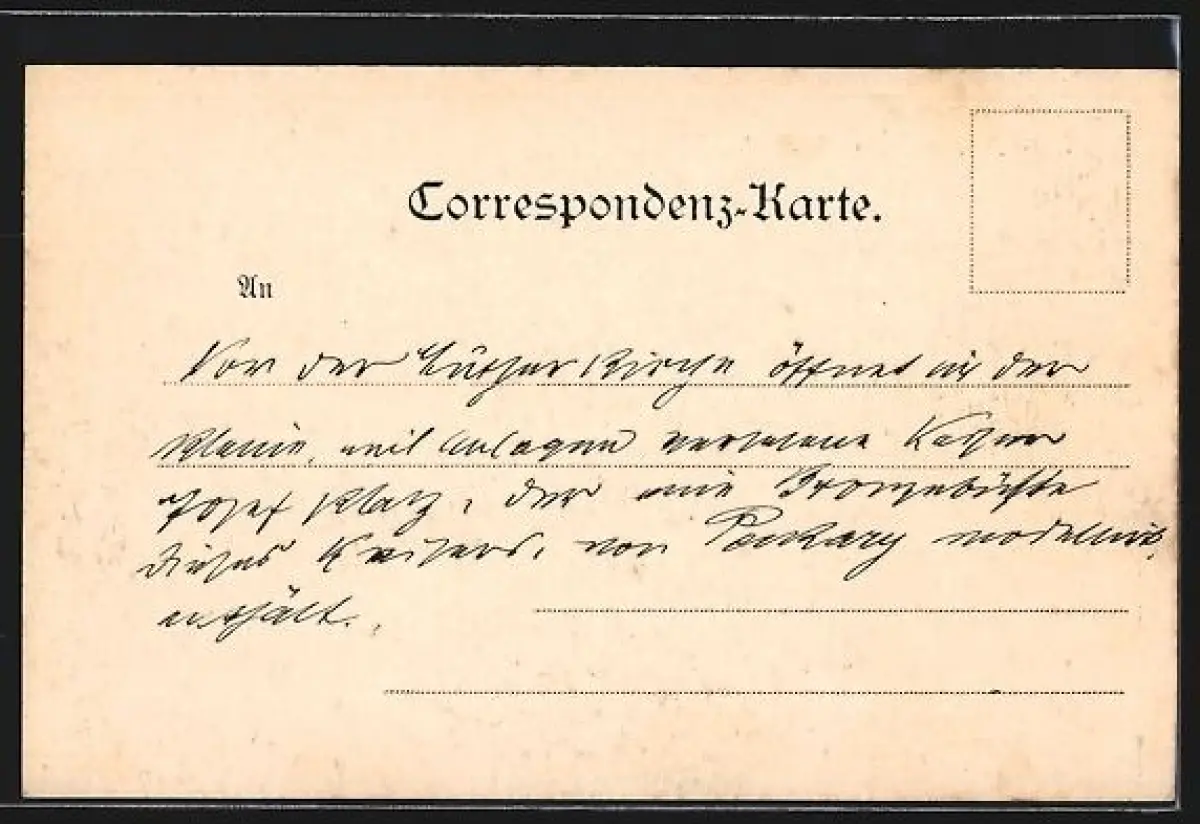 Correspondenz-Karte.
An
Vor der Luther Kirche öffnet sich der
kleine, mit Anlagen versehene Kaiser
Josef Platz, der eine Bronzebüste
dieses Kaisers, von modelliert,
enthält.